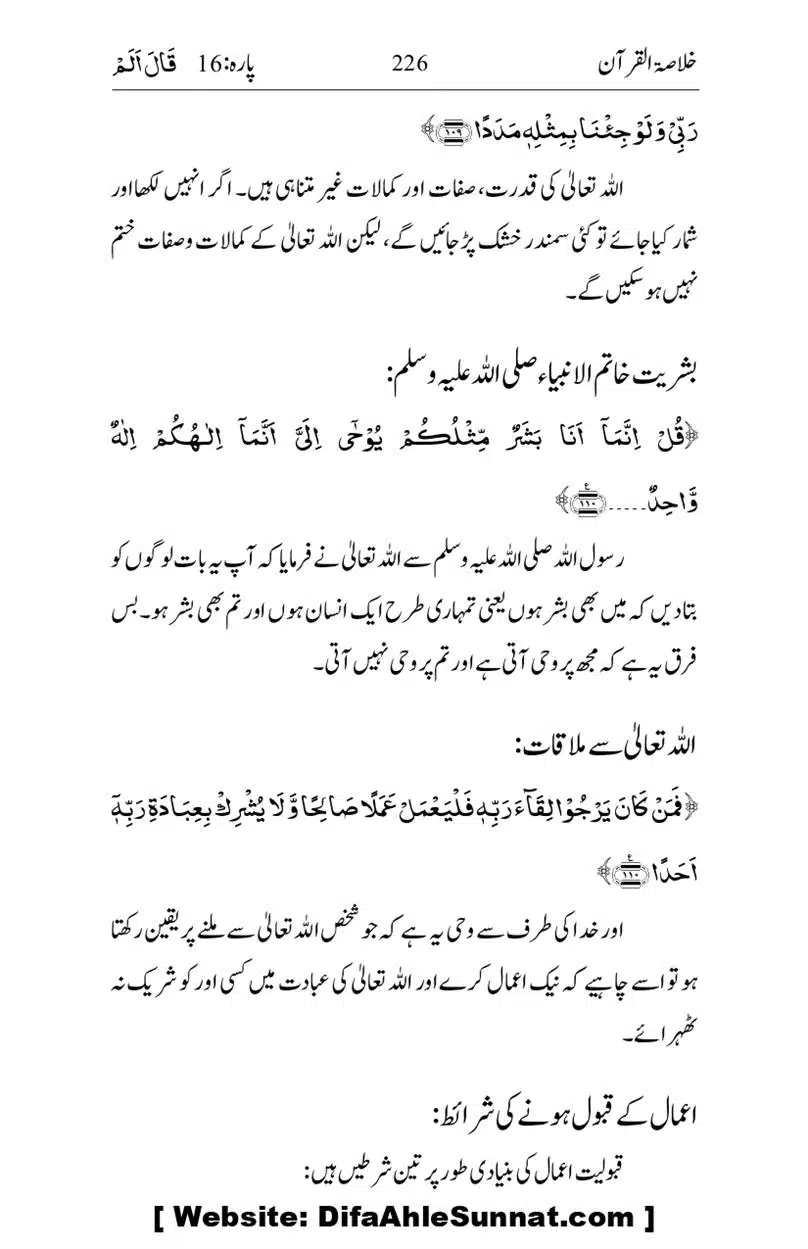 خلاصۃ القرآن 226 پارہ:16 قَالَ اَلَمْ
رَبِّیْ وَلَوْ جِئْنَا بِمِثْلِہٖ مَدَدًا ﴿۱۰۹﴾
اللہ تعالیٰ کی قدرت، صفات اور کمالات غیر متناہی ہیں۔ اگر انہیں لکھا اور
شمار کیا جائے تو کئی سمندر خشک پڑ جائیں گے، لیکن اللہ تعالیٰ کے کمالات و صفات ختم
نہیں ہو سکیں گے۔
بشریت خاتم الانبیاء صلی اللہ علیہ وسلم:
﴿قُلْ اِنَّمَاۤ اَنَا بَشَرٌ مِّثْلُکُمْ یُوْحٰۤی اِلَیَّ اَنَّمَاۤ اِلٰـہُکُمْ اِلٰہٌ
وَّاحِدٌ.....﴿۱۱۰﴾
رسول اللہ صلی اللہ علیہ وسلم سے اللہ تعالیٰ نے فرمایا کہ آپ یہ بات لوگوں کو
بتا دیں کہ میں بھی بشر ہوں یعنی تمہاری طرح ایک انسان ہوں اور تم بھی بشر ہو۔ بس
فرق یہ ہے کہ مجھ پر وحی آتی ہے اور تم پر وحی نہیں آتی۔
اللہ تعالیٰ سے ملاقات:
﴿فَمَنْ کَانَ یَرْجُوْا لِقَآءَ رَبِّہٖ فَلْیَعْمَلْ عَمَلًا صَالِحًا وَّلَا یُشْرِکْ بِعِبَادَۃِ رَبِّہٖۤ
اَحَدًا ﴿۱۱۰﴾
اور خدا کی طرف سے وحی یہ ہے کہ جو شخص اللہ تعالیٰ سے ملنے پر یقین رکھتا
ہو تو اسے چاہیے کہ نیک اعمال کرے اور اللہ تعالیٰ کی عبادت میں کسی اور کو شریک نہ
ٹھہرائے۔
اعمال کے قبول ہونے کی شرائط:
قبولیت اعمال کی بنیادی طور پر تین شرطیں ہیں:
[ Website: DifaAhleSunnat.com ]